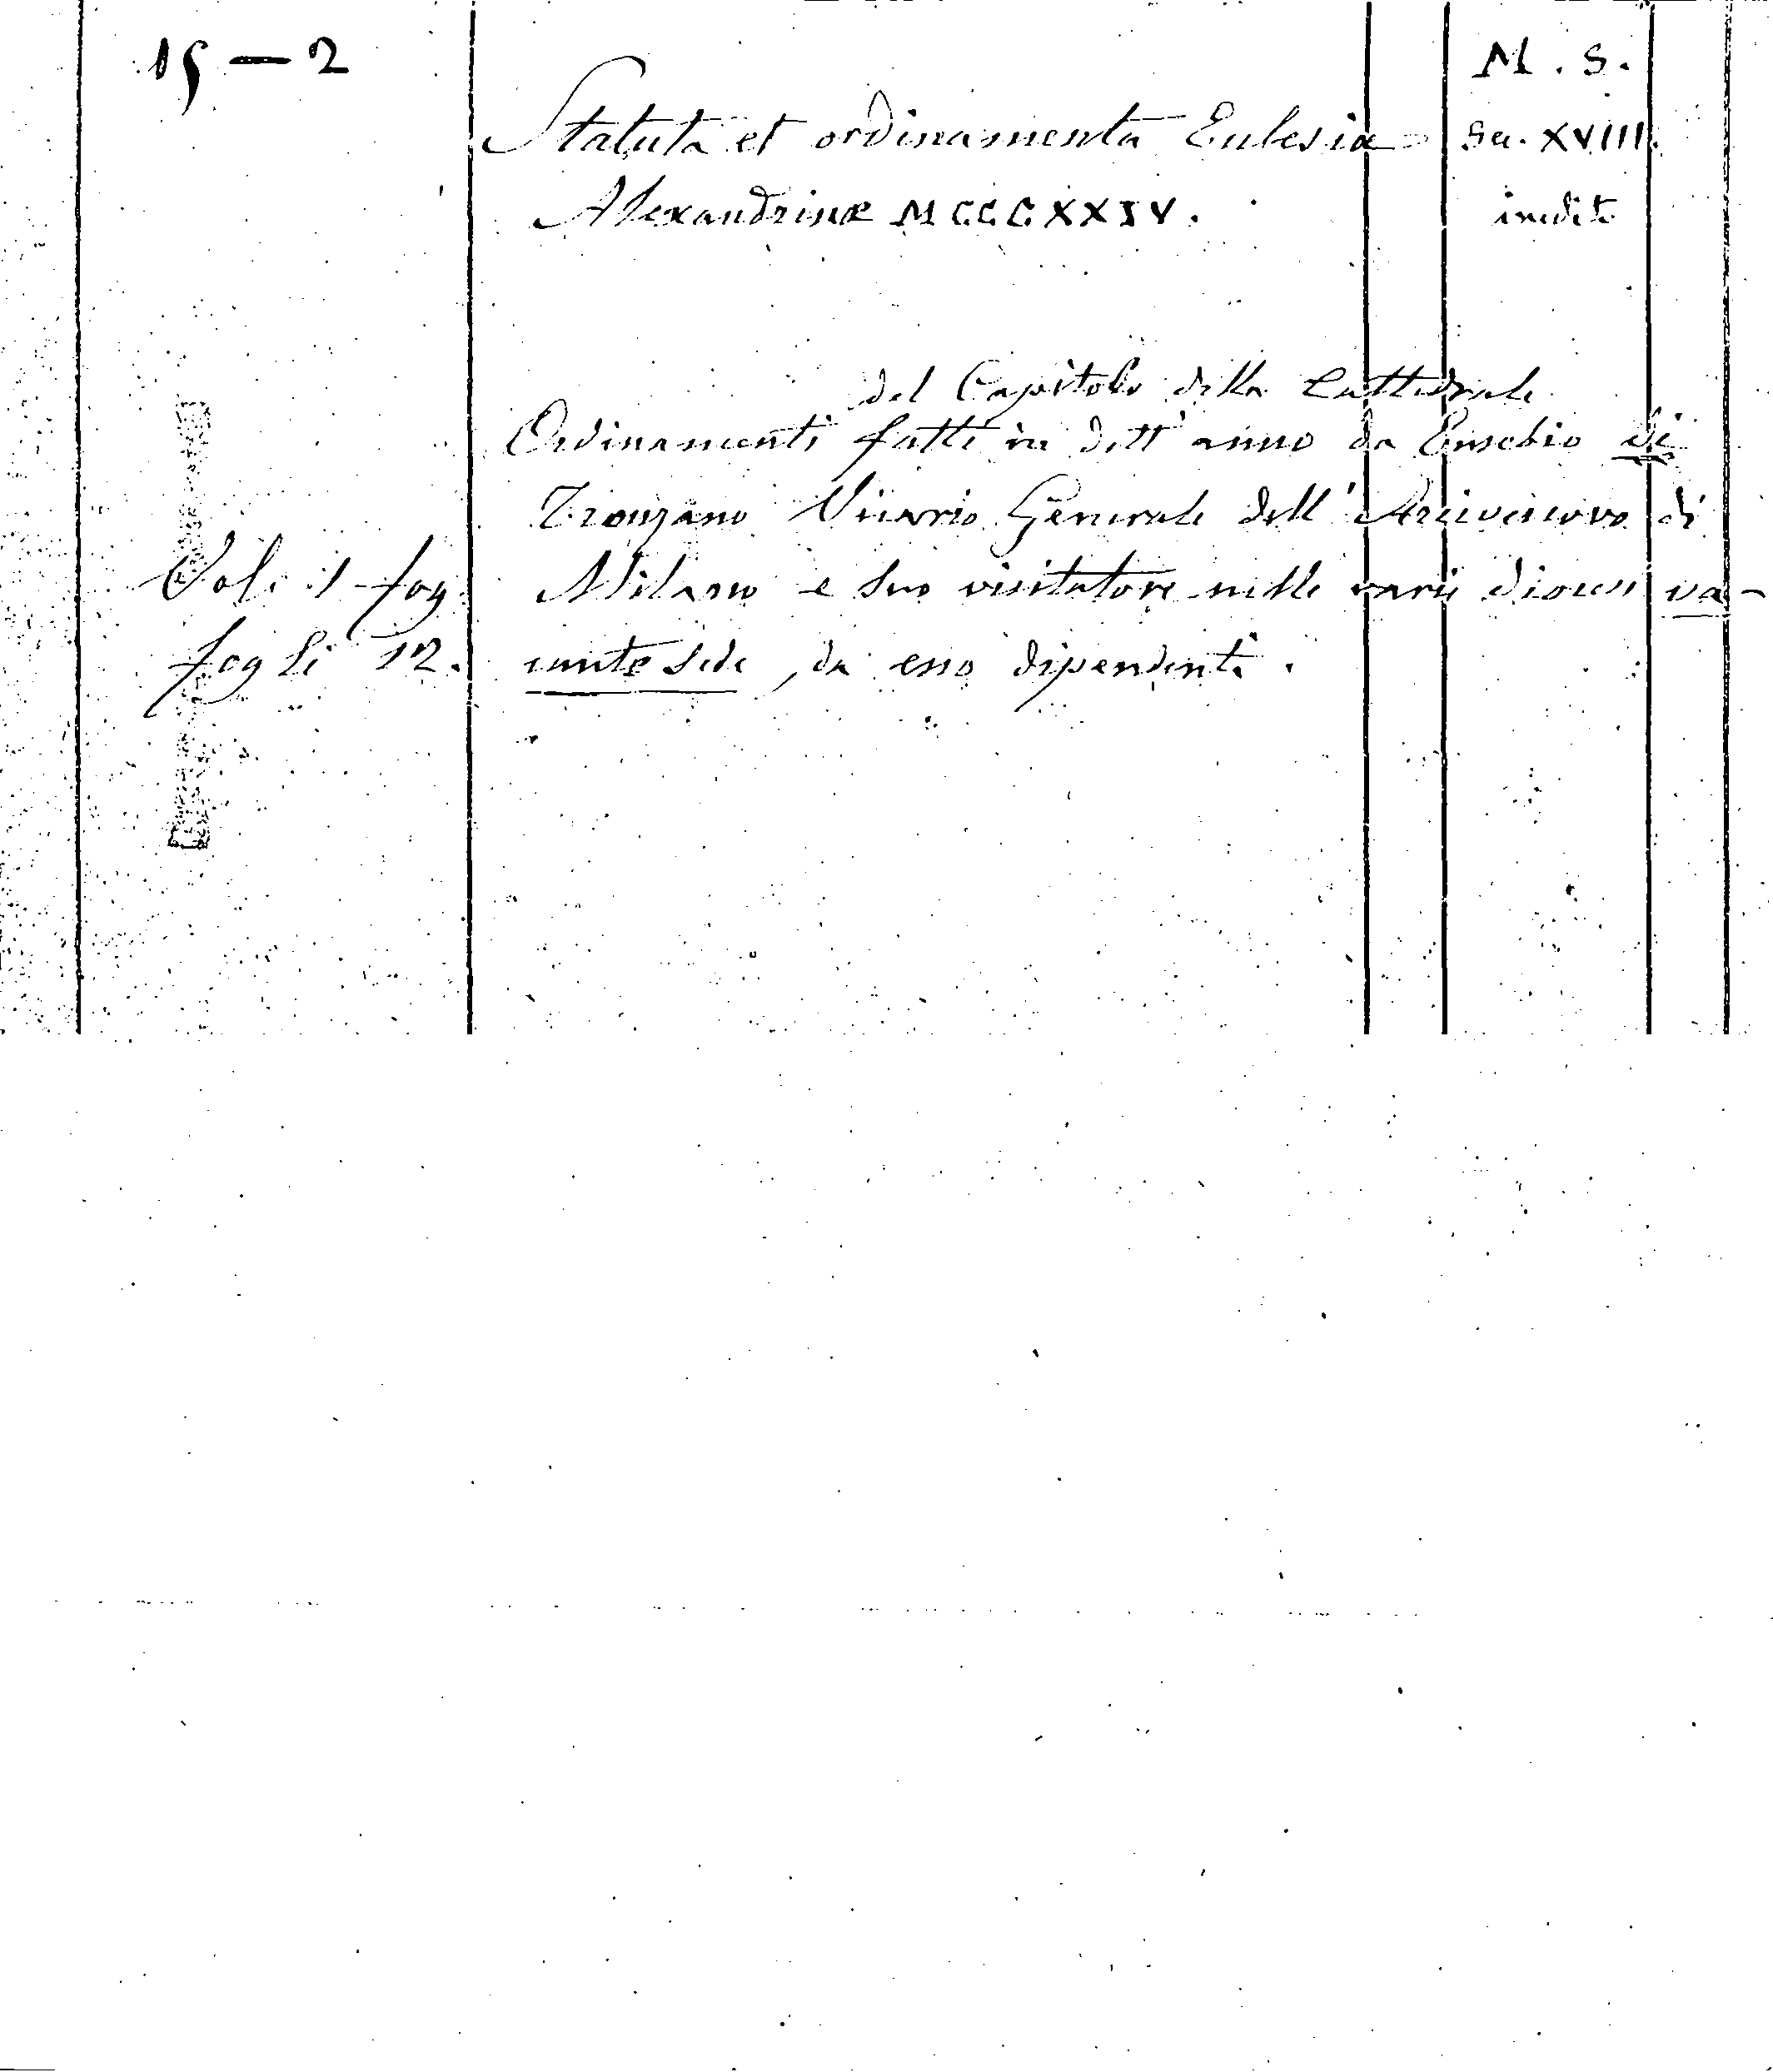 15 — 2
M. S.
Statuta et ordinamenta Ecclesiæ
Sec. XVIII.
Alexandrinæ MCCCCXXIV.
inedito
del Capitolo della Cattedrale
Ordinamenti fatti in dett' anno da Eusebio di
Tronzano Vicario Generale dell' Arcivescovo di
Vol. 1 fog.
Milano e suo visitatore nelle varie diocesi va-
fogli 12.
cante sede, da esso dipendenti.